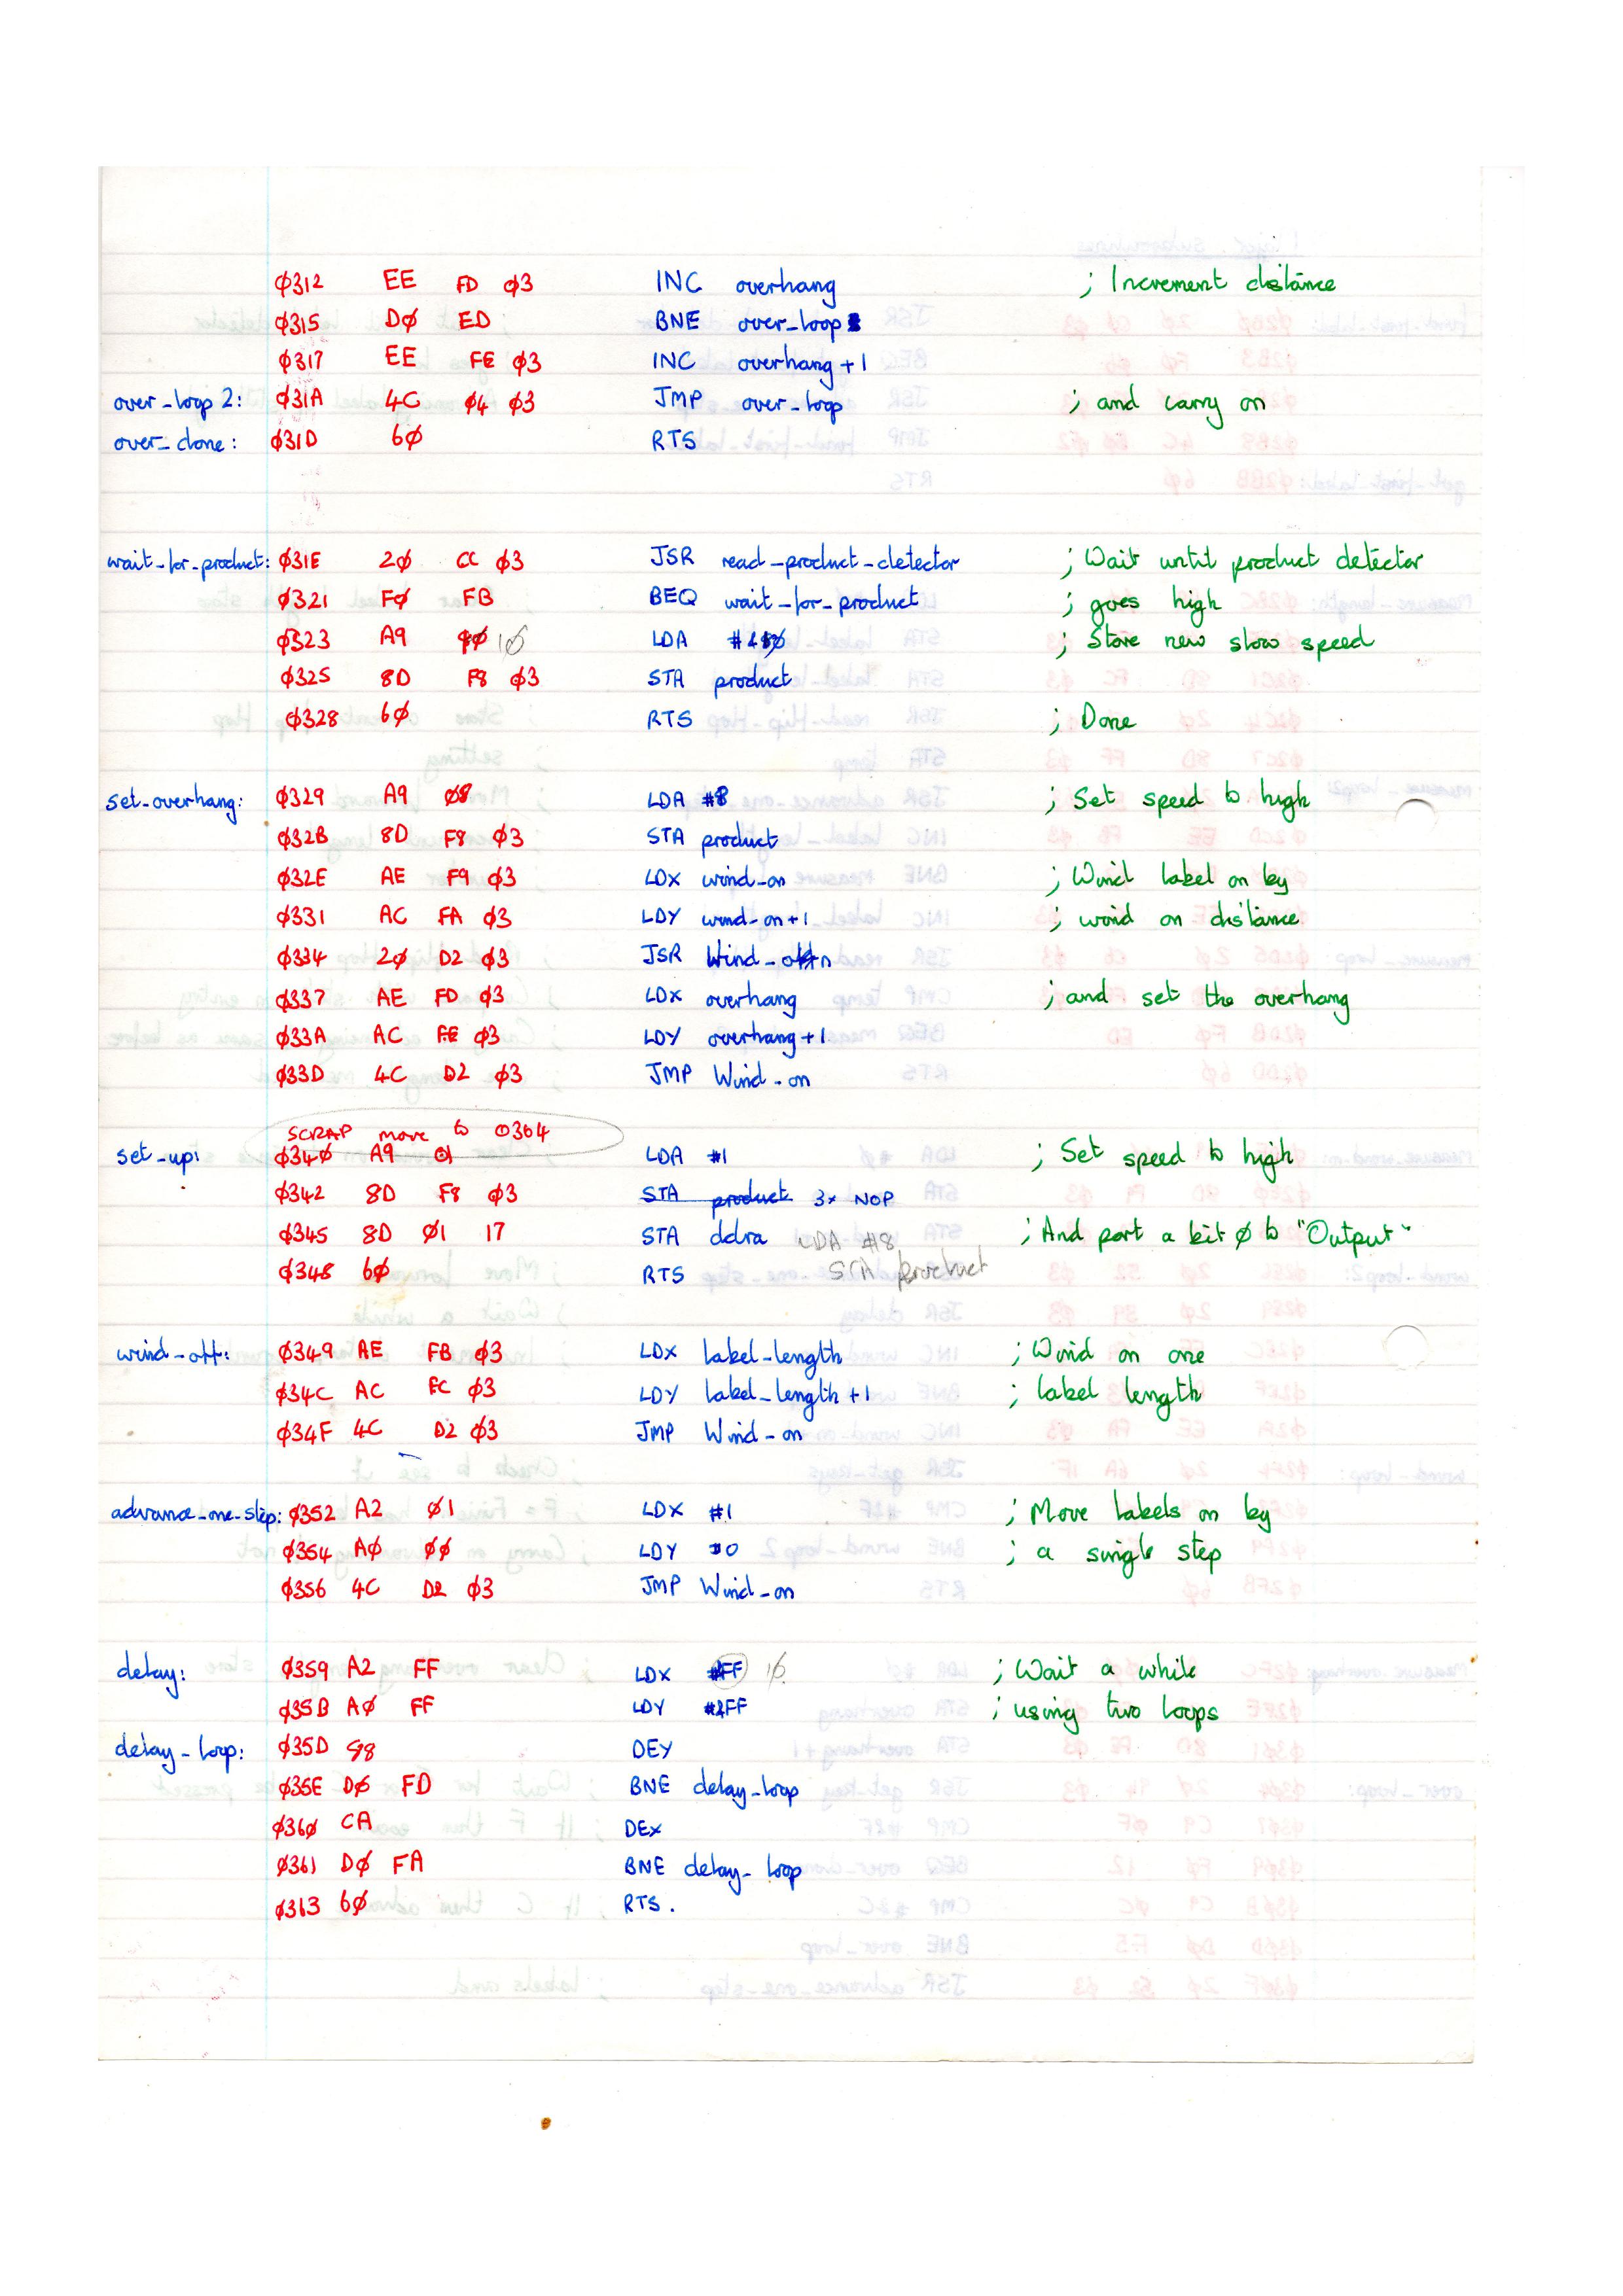 φ312 EE FD φ3 INC overhang ; Increment distance
φ315 Dφ ED BNE over_loop
φ317 EE FE φ3 INC overhang+1
over_loop 2: φ31A 4C φ4 φ3 JMP over_loop ; and carry on
over_done: φ31D 6φ RTS
wait_for_product: φ31E 2φ CC φ3 JSR read_product_detector ; Wait until product detector
φ321 Fφ FB BEQ wait_for_product ; goes high
φ323 A9 10 LDA ; Store new slow speed
φ325 8D F8 φ3 STA product
φ328 6φ RTS ; Done
set_overhang: φ329 A9 φ8 LDA #8 ; Set speed to high
φ32B 8D F8 φ3 STA product
φ32E AE F9 φ3 LDX wind_on ; Wind label on by
φ331 AC FA φ3 LDY wind_on+1 ; wind on distance
φ334 2φ D2 φ3 JSR Wind_on
φ337 AE FD φ3 LDX overhang ; and set the overhang
φ33A AC FE φ3 LDY overhang+1
φ33D 4C D2 φ3 JMP Wind_on
SCRAP move to 0364
set_up: φ34φ A9 01 LDA #1 ; Set speed to high
φ342 8D F8 φ3 STA product 3x NOP
φ345 8D φ1 17 STA ddra LDA #8 ; And port a bit φ to "Output"
φ348 6φ RTS STA product
wind_off: φ349 AE FB φ3 LDX label_length ; Wind on one
φ34C AC FC φ3 LDY label_length+1 ; label length
φ34F 4C D2 φ3 JMP Wind_on
advance_one_step: φ352 A2 φ1 LDX #1 ; Move labels on by
φ354 Aφ φφ LDY #0 ; a single step
φ356 4C D2 φ3 JMP Wind_on
delay: φ359 A2 FF LDX #FF 10 ; Wait a while
φ35B Aφ FF LDY #&FF ; using two loops
delay_loop: φ35D 98 DEY
φ35E Dφ FD BNE delay_loop
φ36φ CA DEX
φ361 Dφ FA BNE delay_loop
φ363 6φ RTS.